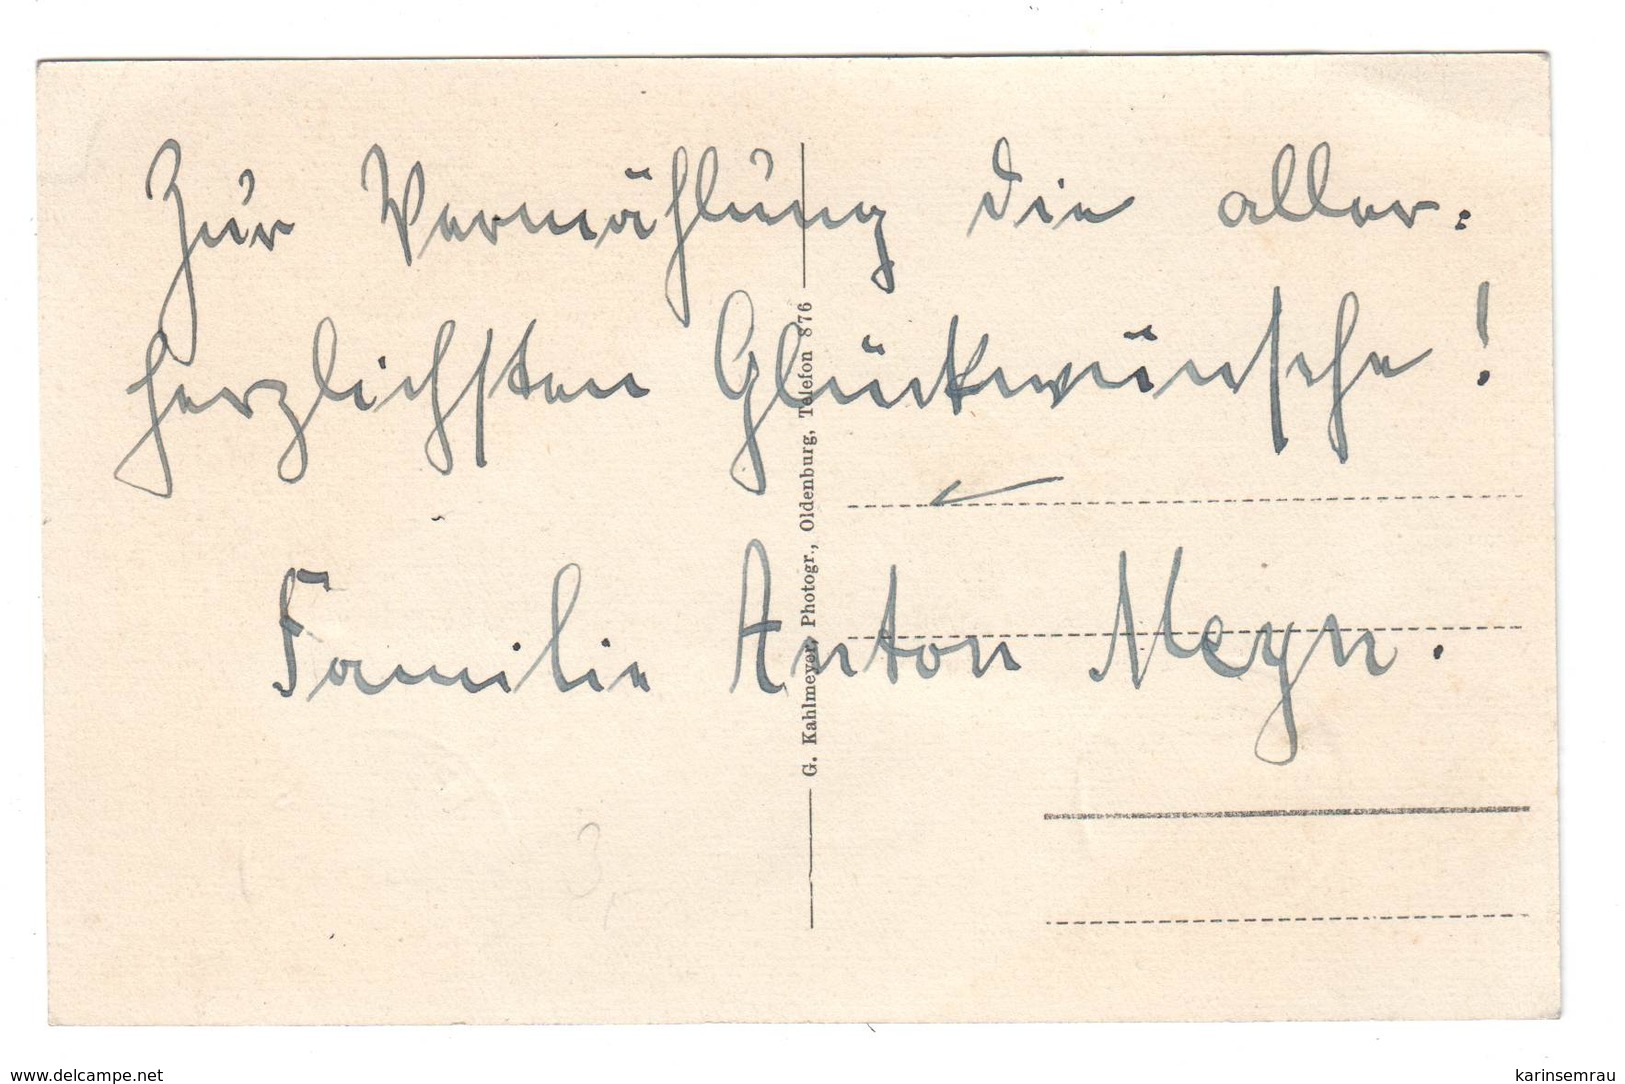 Zur Vermählung die aller:
herzlichsten Glückwünsche!
Familie Anton Meyn.
G. Kahlmeyer, Photogr., Oldenburg, Telefon 876
3,
www.delcampe.net
karinsemrau